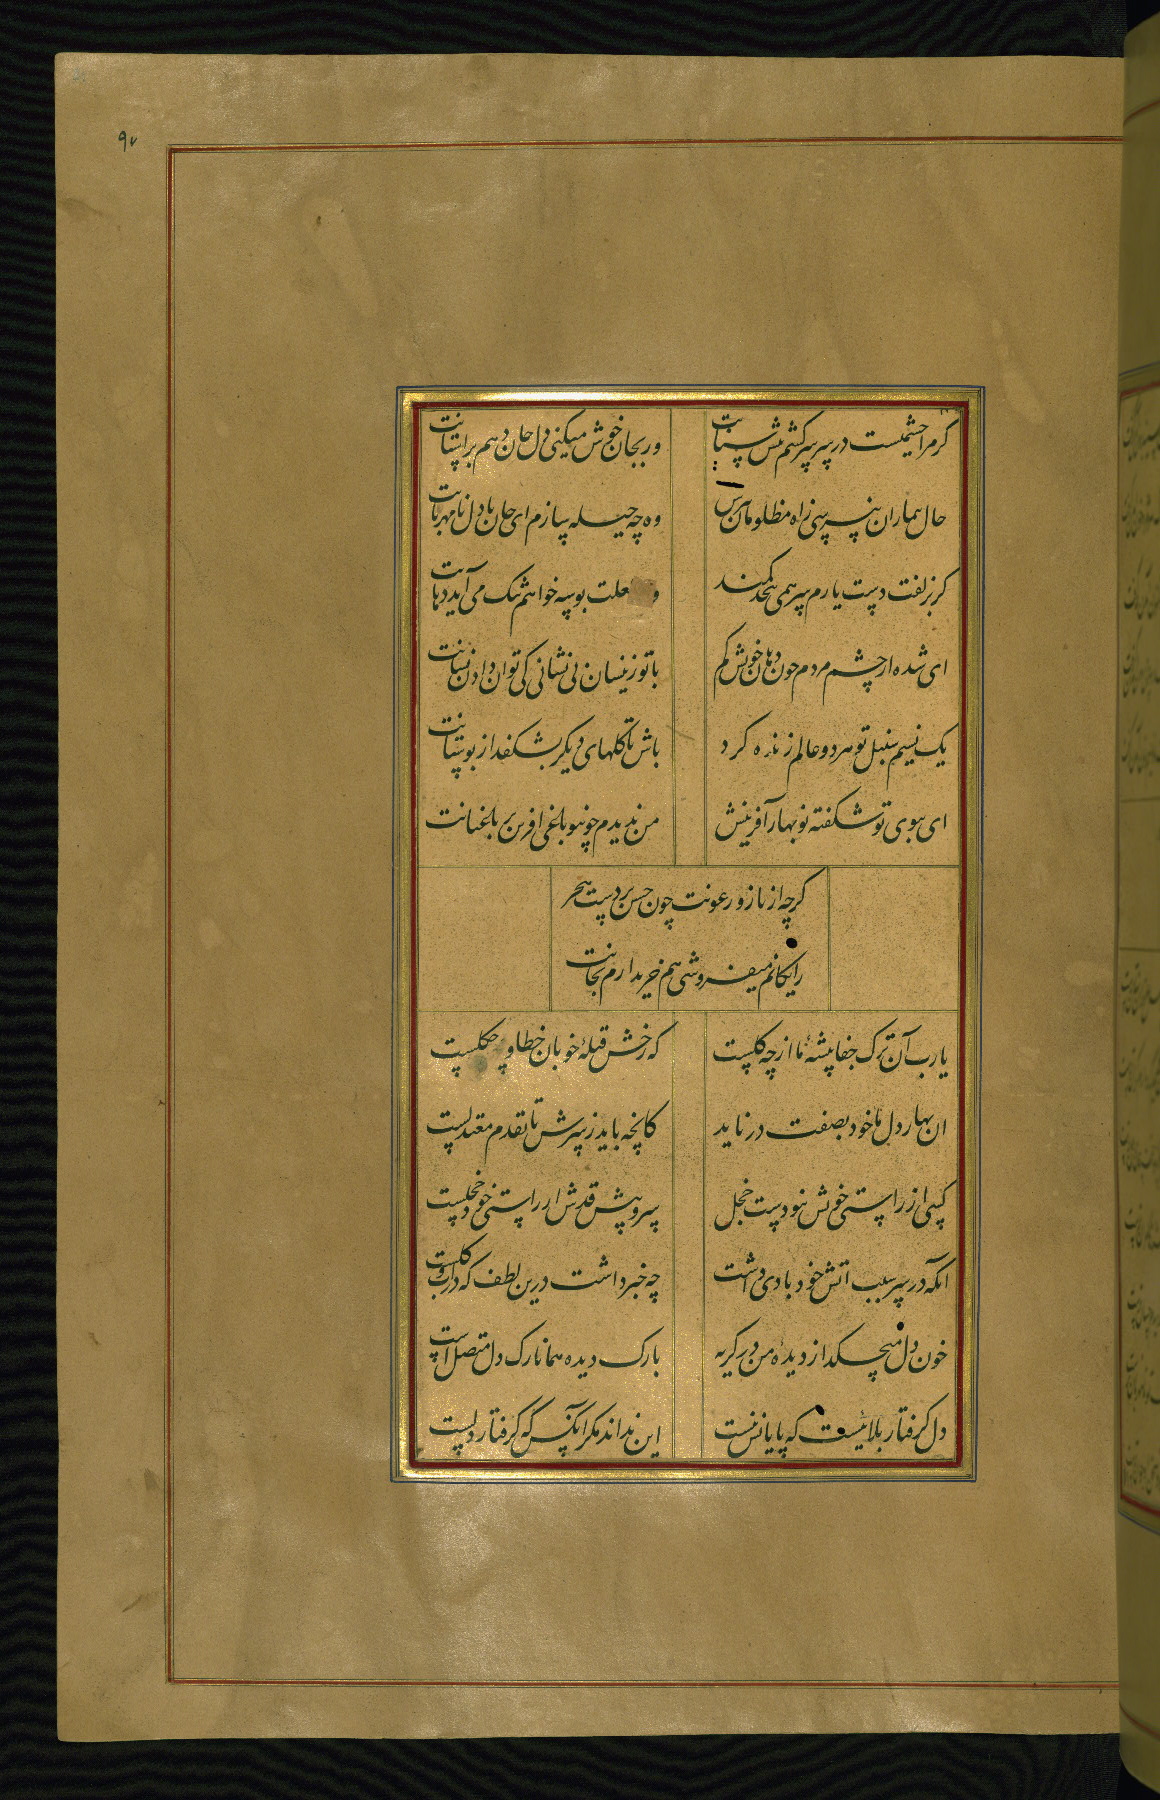 ۹۷
گر مرا چشمیست در سر سرکشم پیش سنانت
ور بجان خوش میکنی دل جان دهم بر آستانت
حال بیماران نپرسی ز آه مظلومان نترس
وه چه حیله سازم ای جان با دل نامهربانت
گر بزلفت دست یارم سر همی پیچد کمند
و لعلت بوسه خواهم تنک می‌آید دهانت
ای شده از چشم مردم چون دهان خویش گم
با تو زینسان بی نشانی کی توان دادن نشانت
یک نسیم سنبل تو هر دو عالم زنده کرد
باش تا گلهای دیگر بشکفد از بوستانت
ای ببوی تو شکفته نوبهار آفرینش
من ندیدم چون تو باغی آفرین بر باغبانت
گرچه از ناز و رعونت چون حسن بر دست هجر
رایگانم میفروشی هم خریدارم بجانت
یارب آن ترک جفا پیشهٔ ما از چه گلست
که رخش قبلهٔ خوبان خطا و چگلست
آن بهار دل ما خود بصفت در ناید
کانچه باید ز سرش تا بقدم معتدلست
کسی از راستی خویش نبودست خجل
سرو پیش قدش از راستی خود خجلست
آنکه در سر سبب آتش خود بادی داشت
چه خبر داشت درین لطف که در آب و گلست
خون دل میچکد از دیدهٔ من در گریه
یا رگ دیده همانا رگ دل متصل است
دل گرفتار بلائیست که پایانش نیست
این نداند مگر آنکس که گرفتار دلست